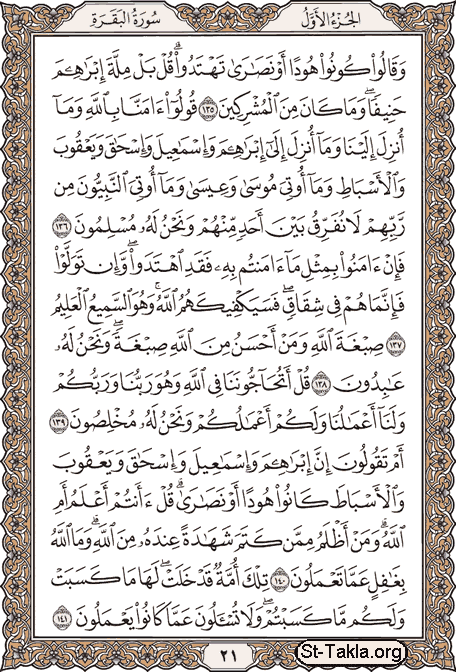 الجزء الأول
سورة البقرة
وَقَالُوا۟ كُونُوا۟ هُودًا أَوْ نَصَٰرَىٰ تَهْتَدُوا۟ ۗ قُلْ بَلْ مِلَّةَ إِبْرَٰهِـۧمَ
حَنِيفًا ۖ وَمَا كَانَ مِنَ ٱلْمُشْرِكِينَ ١٣٥ قُولُوٓا۟ ءَامَنَّا بِٱللَّهِ وَمَآ
أُنزِلَ إِلَيْنَا وَمَآ أُنزِلَ إِلَىٰٓ إِبْرَٰهِـۧمَ وَإِسْمَٰعِيلَ وَإِسْحَٰقَ وَيَعْقُوبَ
وَٱلْأَسْبَاطِ وَمَآ أُوتِىَ مُوسَىٰ وَعِيسَىٰ وَمَآ أُوتِىَ ٱلنَّبِيُّونَ مِن
رَّبِّهِمْ لَا نُفَرِّقُ بَيْنَ أَحَدٍ مِّنْهُمْ وَنَحْنُ لَهُۥ مُسْلِمُونَ ١٣٦
فَإِنْ ءَامَنُوا۟ بِمِثْلِ مَآ ءَامَنتُم بِهِۦ فَقَدِ ٱهْتَدَوا۟ ۖ وَّإِن تَوَلَّوْا۟
فَإِنَّمَا هُمْ فِى شِقَاقٍ ۖ فَسَيَكْفِيكَهُمُ ٱللَّهُ ۚ وَهُوَ ٱلسَّمِيعُ ٱلْعَلِيمُ
١٣٧ صِبْغَةَ ٱللَّهِ ۖ وَمَنْ أَحْسَنُ مِنَ ٱللَّهِ صِبْغَةً ۖ وَنَحْنُ لَهُۥ
عَٰبِدُونَ ١٣٨ قُلْ أَتُحَآجُّونَنَا فِى ٱللَّهِ وَهُوَ رَبُّنَا وَرَبُّكُمْ
وَلَنَآ أَعْمَٰلُنَا وَلَكُمْ أَعْمَٰلُكُمْ وَنَحْنُ لَهُۥ مُخْلِصُونَ ١٣٩
أَمْ تَقُولُونَ إِنَّ إِبْرَٰهِـۧمَ وَإِسْمَٰعِيلَ وَإِسْحَٰقَ وَيَعْقُوبَ
وَٱلْأَسْبَاطَ كَانُوا۟ هُودًا أَوْ نَصَٰرَىٰ ۗ قُلْ ءَأَنتُمْ أَعْلَمُ أَمِ
ٱللَّهُ ۗ وَمَنْ أَظْلَمُ مِمَّن كَتَمَ شَهَٰدَةً عِندَهُۥ مِنَ ٱللَّهِ ۗ وَمَا ٱللَّهُ
بِغَٰفِلٍ عَمَّا تَعْمَلُونَ ١٤٠ تِلْكَ أُمَّةٌ قَدْ خَلَتْ ۖ لَهَا مَا كَسَبَتْ
وَلَكُم مَّا كَسَبْتُمْ ۖ وَلَا تُسْـَٔلُونَ عَمَّا كَانُوا۟ يَعْمَلُونَ ١٤١
٢١
St-Takla.org